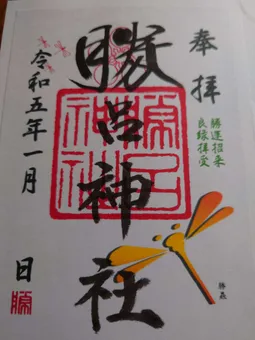 奉拝
勝運招来
良縁拝受
勝蟲
勝呂神社
勝呂
神社
令和五年一月 日
勝